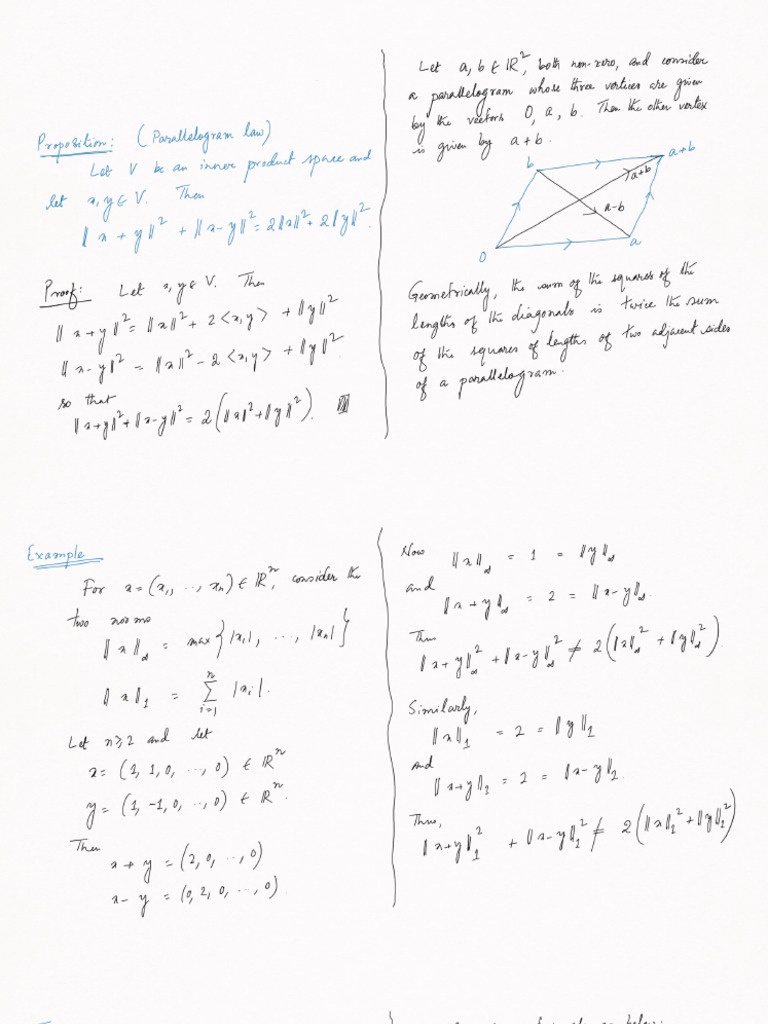 Proposition: (Parallelogram law)
Let V be an inner product space and
let x, y ∈ V. Then
‖x + y‖² + ‖x−y‖² = 2‖x‖² + 2‖y‖².
Proof: Let x, y ∈ V. Then
‖x+y‖² = ‖x‖² + 2<x,y> + ‖y‖²
‖x−y‖² = ‖x‖² − 2<x,y> + ‖y‖².
so that
‖x+y‖² + ‖x−y‖² = 2(‖x‖² + ‖y‖²).
Let a, b ∈ ℝ², both non-zero, and consider
a parallelogram whose three vertices are given
by the vectors 0, a, b. Then the other vertex
is given by a+b.
b
a+b
a+b
a−b
0
a
Geometrically, the sum of the squares of the
lengths of the diagonals is twice the sum
of the squares of lengths of two adjacent sides
of a parallelogram.
Example
For x = (x₁, ..., xₙ) ∈ ℝⁿ, consider the
two norms
‖x‖∞ = max{|x₁|, ..., |xₙ|}
‖x‖₁ = Σᵢ₌₁ⁿ |xᵢ|.
Let n ≥ 2 and let
x = (1, 1, 0, ..., 0) ∈ ℝⁿ
y = (1, −1, 0, ..., 0) ∈ ℝⁿ.
Then
x + y = (2, 0, ..., 0)
x − y = (0, 2, 0, ..., 0).
Now
‖x‖∞ = 1 = ‖y‖∞
and
‖x + y‖∞ = 2 = ‖x−y‖∞.
Thus
‖x+y‖∞² + ‖x−y‖∞² ≠ 2(‖x‖∞² + ‖y‖∞²).
Similarly,
‖x‖₁ = 2 = ‖y‖₁
and
‖x+y‖₁ = 2 = ‖x−y‖₁.
Thus,
‖x+y‖₁² + ‖x−y‖₁² ≠ 2(‖x‖₁² + ‖y‖₁²)
below: